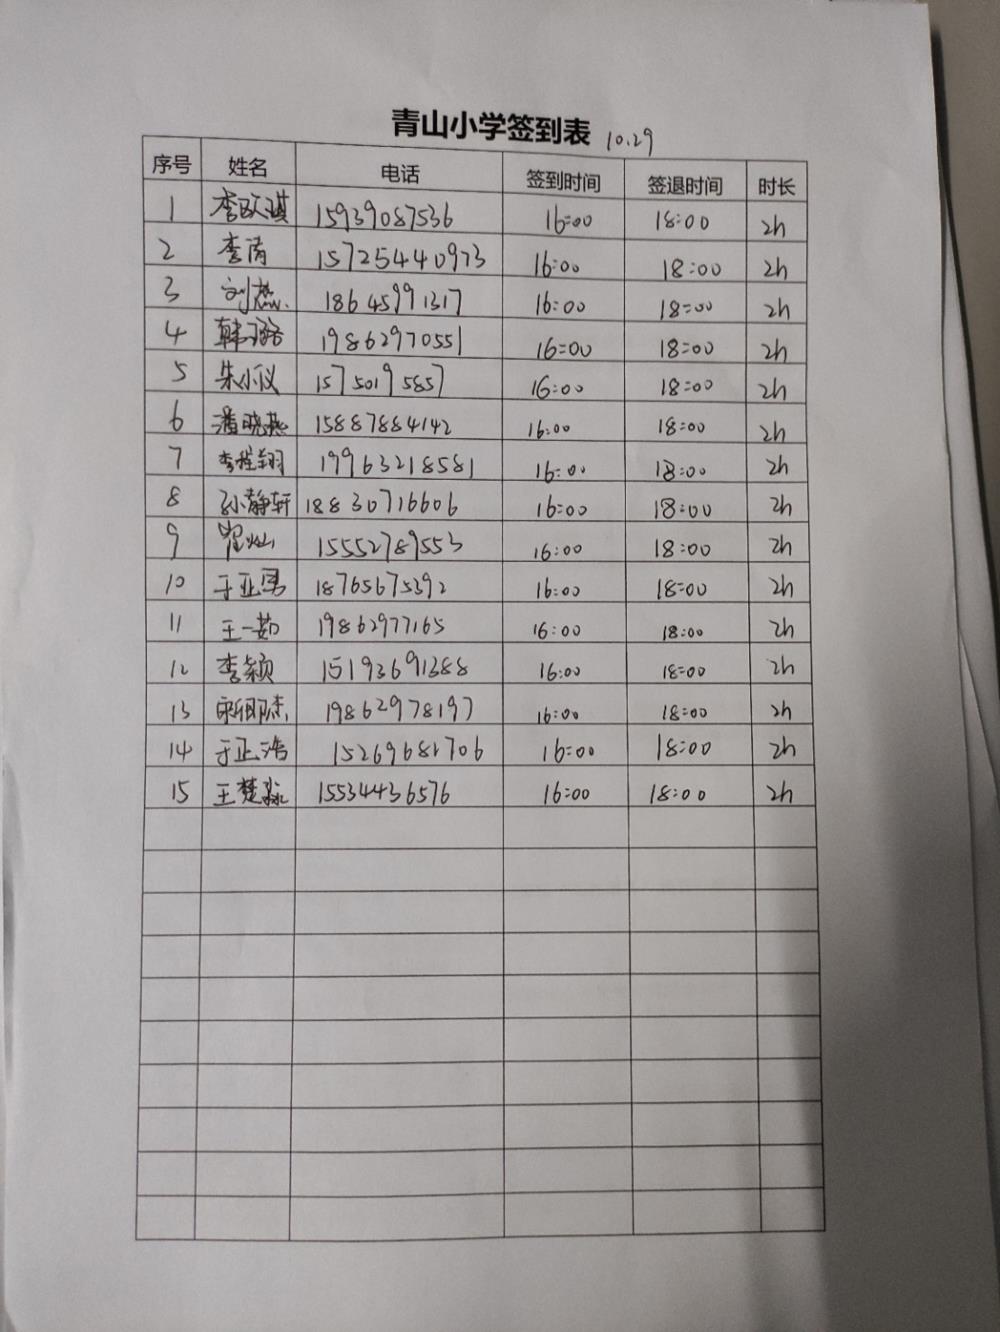 青山小学签到表 10.29
序号 姓名 电话 签到时间 签退时间 时长
1 李欧琪 15939087536 16:00 18:00 2h
2 李芮 15725440973 16:00 18:00 2h
3 刘燕 18645991317 16:00 18:00 2h
4 韩璐 19862970551 16:00 18:00 2h
5 朱小仪 15750195857 16:00 18:00 2h
6 潘晓燕 15887884142 16:00 18:00 2h
7 李程翔 19963218581 16:00 18:00 2h
8 孙静轩 18830716606 16:00 18:00 2h
9 翟灿 15552789553 16:00 18:00 2h
10 于亚男 18765675392 16:00 18:00 2h
11 王一茹 19862977165 16:00 18:00 2h
12 李颖 15193691388 16:00 18:00 2h
13 19862978197 16:00 18:00 2h
14 于正浩 15269681706 16:00 18:00 2h
15 王楚淼 15534436576 16:00 18:00 2h